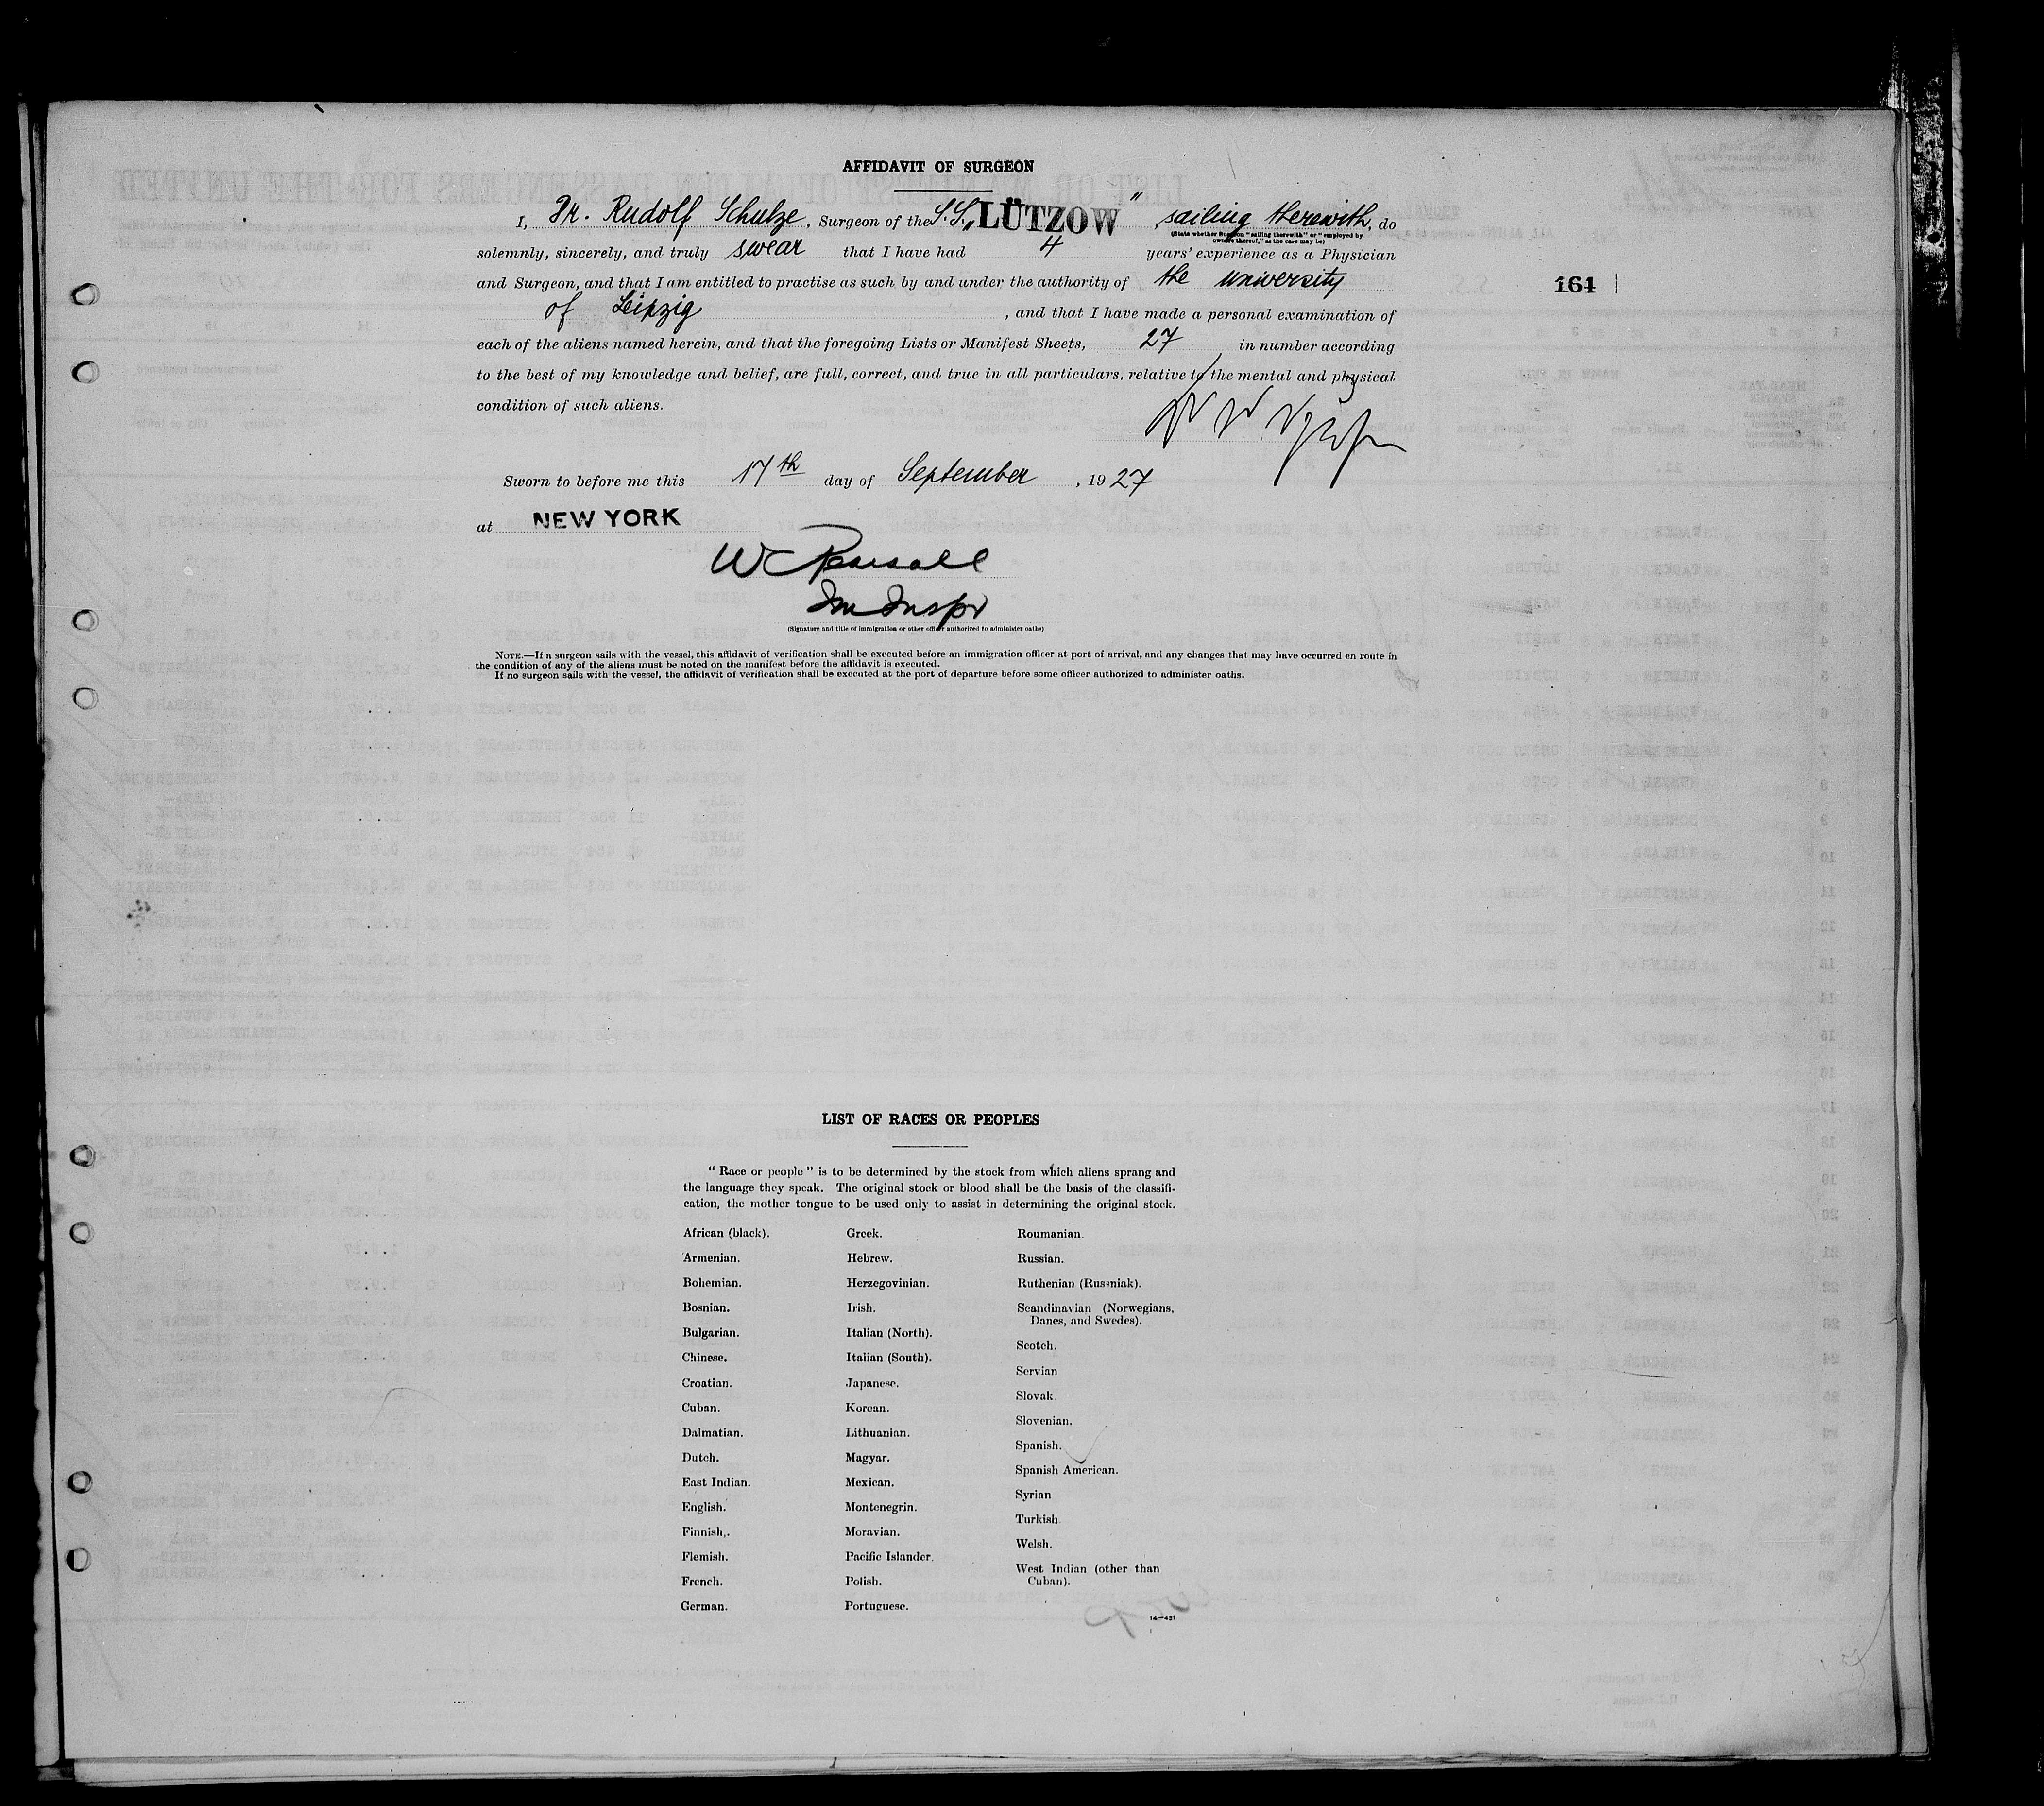 AFFIDAVIT OF SURGEON
I, Dr. Rudolf Schulze, Surgeon of the S.S. „LÜTZOW", sailing therewith, do
(State whether Surgeon "sailing therewith" or "employed by
owners thereof," as the case may be)
solemnly, sincerely, and truly swear that I have had 4 years' experience as a Physician
and Surgeon, and that I am entitled to practise as such by and under the authority of the university
164
of Leipzig, and that I have made a personal examination of
each of the aliens named herein, and that the foregoing Lists or Manifest Sheets, 27 in number according
to the best of my knowledge and belief, are full, correct, and true in all particulars, relative to the mental and physical
condition of such aliens.
Sworn to before me this 17th day of September, 1927
at NEW YORK
Im Inspr
(Signature and title of immigration or other officer authorized to administer oaths)
NOTE.—If a surgeon sails with the vessel, this affidavit of verification shall be executed before an immigration officer at port of arrival, and any changes that may have occurred en route in
the condition of any of the aliens must be noted on the manifest before the affidavit is executed.
If no surgeon sails with the vessel, the affidavit of verification shall be executed at the port of departure before some officer authorized to administer oaths.
LIST OF RACES OR PEOPLES
"Race or people" is to be determined by the stock from which aliens sprang and
the language they speak. The original stock or blood shall be the basis of the classifi-
cation, the mother tongue to be used only to assist in determining the original stock.
African (black).
Armenian.
Bohemian.
Bosnian.
Bulgarian.
Chinese.
Croatian.
Cuban.
Dalmatian.
Dutch.
East Indian.
English.
Finnish.
Flemish.
French.
German.
Greek.
Hebrew.
Herzegovinian.
Irish.
Italian (North).
Italian (South).
Japanese.
Korean.
Lithuanian.
Magyar.
Mexican.
Montenegrin.
Moravian.
Pacific Islander.
Polish.
Portuguese.
Roumanian.
Russian.
Ruthenian (Russniak).
Scandinavian (Norwegians,
Danes, and Swedes).
Scotch.
Servian
Slovak.
Slovenian.
Spanish.
Spanish American.
Syrian
Turkish
Welsh.
West Indian (other than
Cuban).
14—421